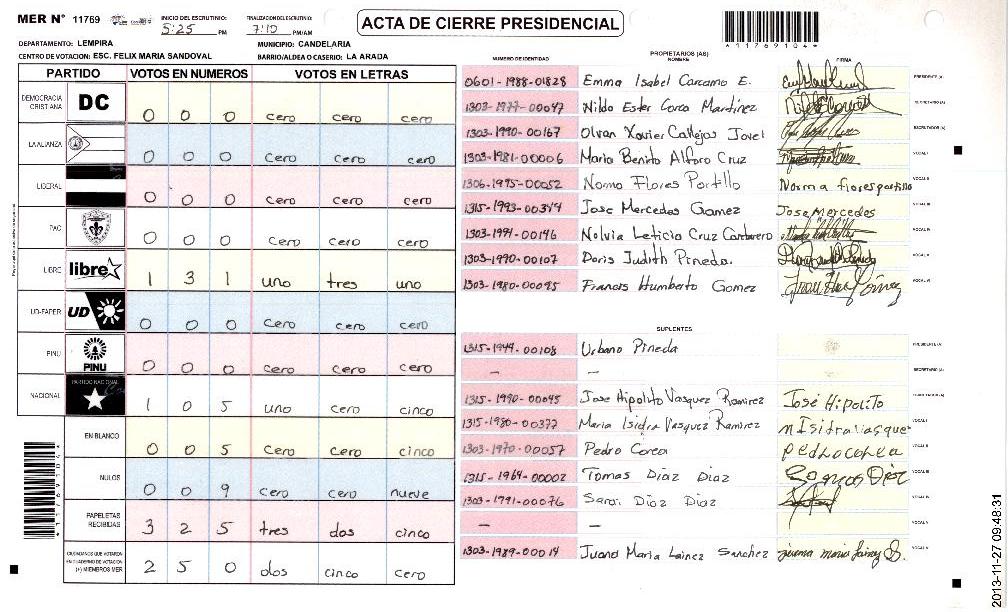 MER N° 11769
INICIO DEL ESCRUTINIO: 5:25 PM
FINALIZACION DEL ESCRUTINIO: 7:10 PM/AM
ACTA DE CIERRE PRESIDENCIAL
*117691041*
DEPARTAMENTO: LEMPIRA
MUNICIPIO: CANDELARIA
CENTRO DE VOTACION: ESC. FELIX MARIA SANDOVAL
BARRIO/ALDEA O CASERIO: LA ARADA
PARTIDO VOTOS EN NUMEROS VOTOS EN LETRAS
DEMOCRACIA CRISTIANA DC 0 0 0 cero cero cero
LA ALIANZA 0 0 0 cero cero cero
LIBERAL 0 0 0 cero cero cero
PAC 0 0 0 cero cero cero
LIBRE libre 1 3 1 uno tres uno
UD-FAPER UD 0 0 0 cero cero cero
PINU PINU 0 0 0 cero cero cero
NACIONAL PARTIDO NACIONAL 1 0 5 uno cero cinco
EN BLANCO 0 0 5 cero cero cinco
NULOS 0 0 9 cero cero nueve
PAPELETAS RECIBIDAS 3 2 5 tres dos cinco
CIUDADANOS QUE VOTARON EN CUADERNO DE VOTACION (+) MIEMBROS MER 2 5 0 dos cinco cero
NUMERO DE IDENTIDAD
PROPIETARIOS (AS) NOMBRE
FIRMA
0601-1988-01828 Emma Isabel Carcamo E. PRESIDENTE (A)
1303-1977-00047 Nildo Ester Corea Martinez SECRETARIO (A)
1303-1990-00167 Olvan Xavier Callejas Jovel ESCRUTADOR (A)
1303-1981-00006 Maria Benito Alfaro Cruz VOCAL I
1306-1995-00052 Norma Flores Portillo Norma floresportillo VOCAL II
1315-1993-00344 Jose Mercedes Gomez Jose Mercedes VOCAL III
1303-1991-00146 Nolvia Leticia Cruz Cantarero VOCAL IV
1303-1990-00107 Doris Judith Pineda. VOCAL V
1303-1980-00095 Francis Humberto Gomez VOCAL VI
SUPLENTES
1315-1949-00108 Urbano Pineda PRESIDENTE (A)
- - SECRETARIO (A)
1315-1990-00045 Jose Hipolito Vasquez Ramirez José Hipolito ESCRUTADOR (A)
1315-1980-00377 Maria Isidra Vasquez Ramirez VOCAL I
1303-1970-00057 Pedro Corea pedro corea VOCAL II
1315-1964-00002 Tomas Diaz Diaz VOCAL III
1303-1991-00076 Sarai Diaz Diaz VOCAL IV
- - VOCAL V
1303-1989-00014 Juana Maria Lainez Sanchez VOCAL VI
2013-11-27 09:48:31